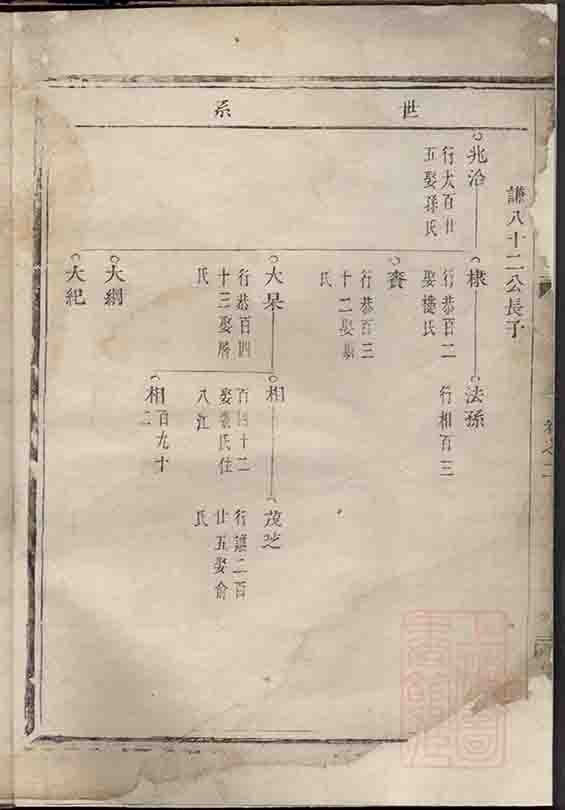 世系
謙八十二公長子
兆沿
行大百廿
五娶孫氏
棣
行恭百二
娶樓氏
法孫
行相百三
賚
行恭百三
十二娶
氏
大杲
行恭百四
十三娶
氏
相
百四十二
娶 氏住
八江
茂芝
行謙二百
廿五娶俞
氏
相
百九十
二
大綱
大紀
卷之二